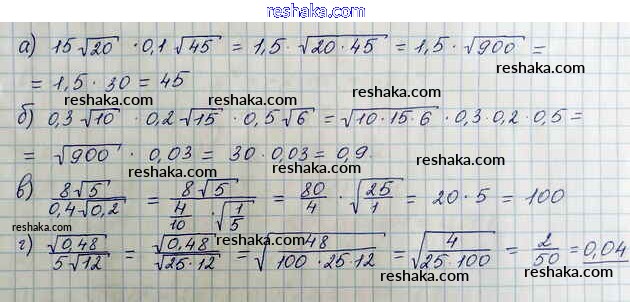 reshaka.com
а) 15√20 · 0,1√45 = 1,5 · √(20·45) = 1,5 · √900 =
reshaka.com reshaka.com
= 1,5 · 30 = 45 reshaka.com
reshaka.com
б) 0,3√10 · 0,2√15 · 0,5√6 = √(10·15·6) · 0,3·0,2·0,5 =
= √900 · 0,03 = 30·0,03 = 0,9. reshaka.com
reshaka.com reshaka.com
в) 8√5/(0,4√0,2) = 8√5/(4/10 · √(1/5)) = 80/4 · √(25/1) = 20·5 = 100
reshaka.com reshaka.com
г) √0,48/(5√12) = √0,48/√(25·12) = √(48/(100·25·12)) = √(4/(25·100)) = 2/50 = 0,04
reshaka.com reshaka.com